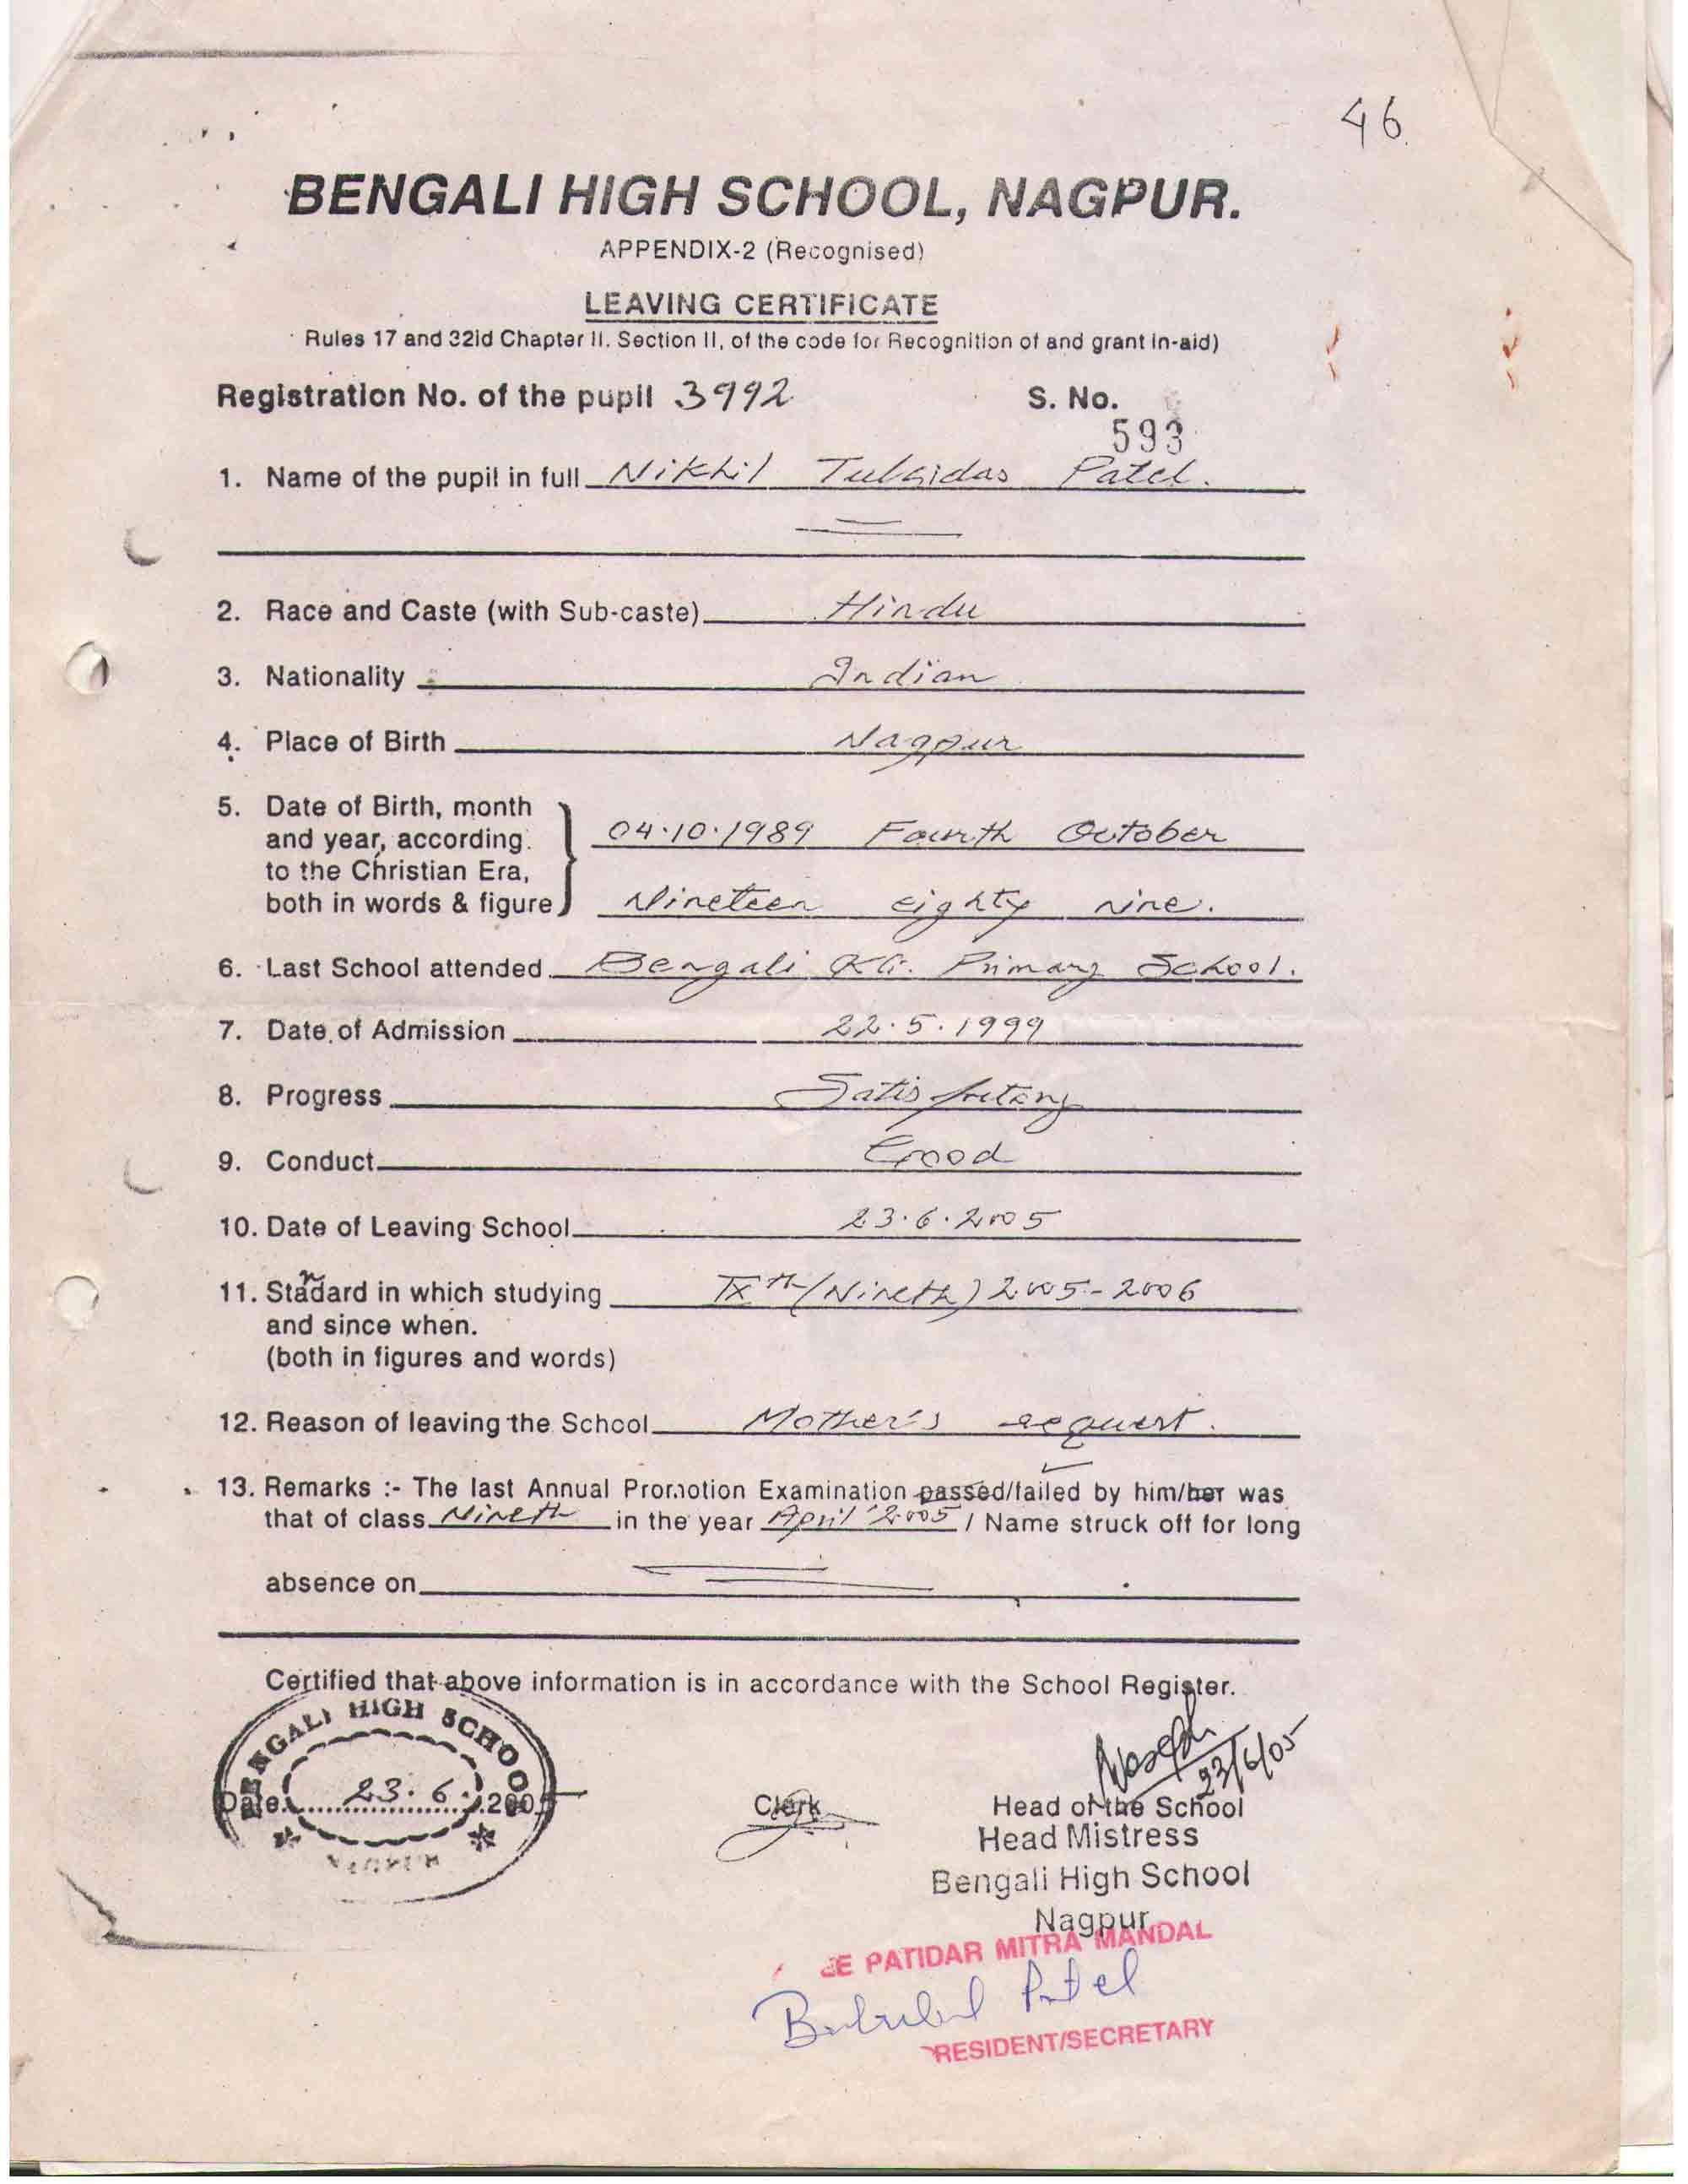 46
BENGALI HIGH SCHOOL, NAGPUR.
APPENDIX-2 (Recognised)
LEAVING CERTIFICATE
Rules 17 and 32id Chapter II. Section II, of the code for Recognition of and grant in-aid)
Registration No. of the pupil 3992 S. No.
593
1. Name of the pupil in full Nikhil Tulsidas Patel.
2. Race and Caste (with Sub-caste) Hindu
3. Nationality Indian
4. Place of Birth Nagpur
5. Date of Birth, month
and year, according
to the Christian Era,
both in words & figure
04.10.1989 Fourth October
Nineteen eighty nine.
6. Last School attended Bengali KG. Primary School.
7. Date of Admission 22.5.1999
8. Progress Satisfactory
9. Conduct Good
10. Date of Leaving School 23.6.2005
11. Stadard in which studying IXth (Nineth) 2005-2006
n
and since when.
(both in figures and words)
12. Reason of leaving the School Mother's request.
13. Remarks :- The last Annual Promotion Examination passed/failed by him/her was
that of class Nineth in the year April '2005 / Name struck off for long
absence on
Certified that above information is in accordance with the School Register.
BENGALI HIGH SCHOOL
NAGPUR
23/6/05
Date 23.6.2005
Clerk
Head of the School
Head Mistress
Bengali High School
Nagpur
EE PATIDAR MITRA MANDAL
Patel
RESIDENT/SECRETARY